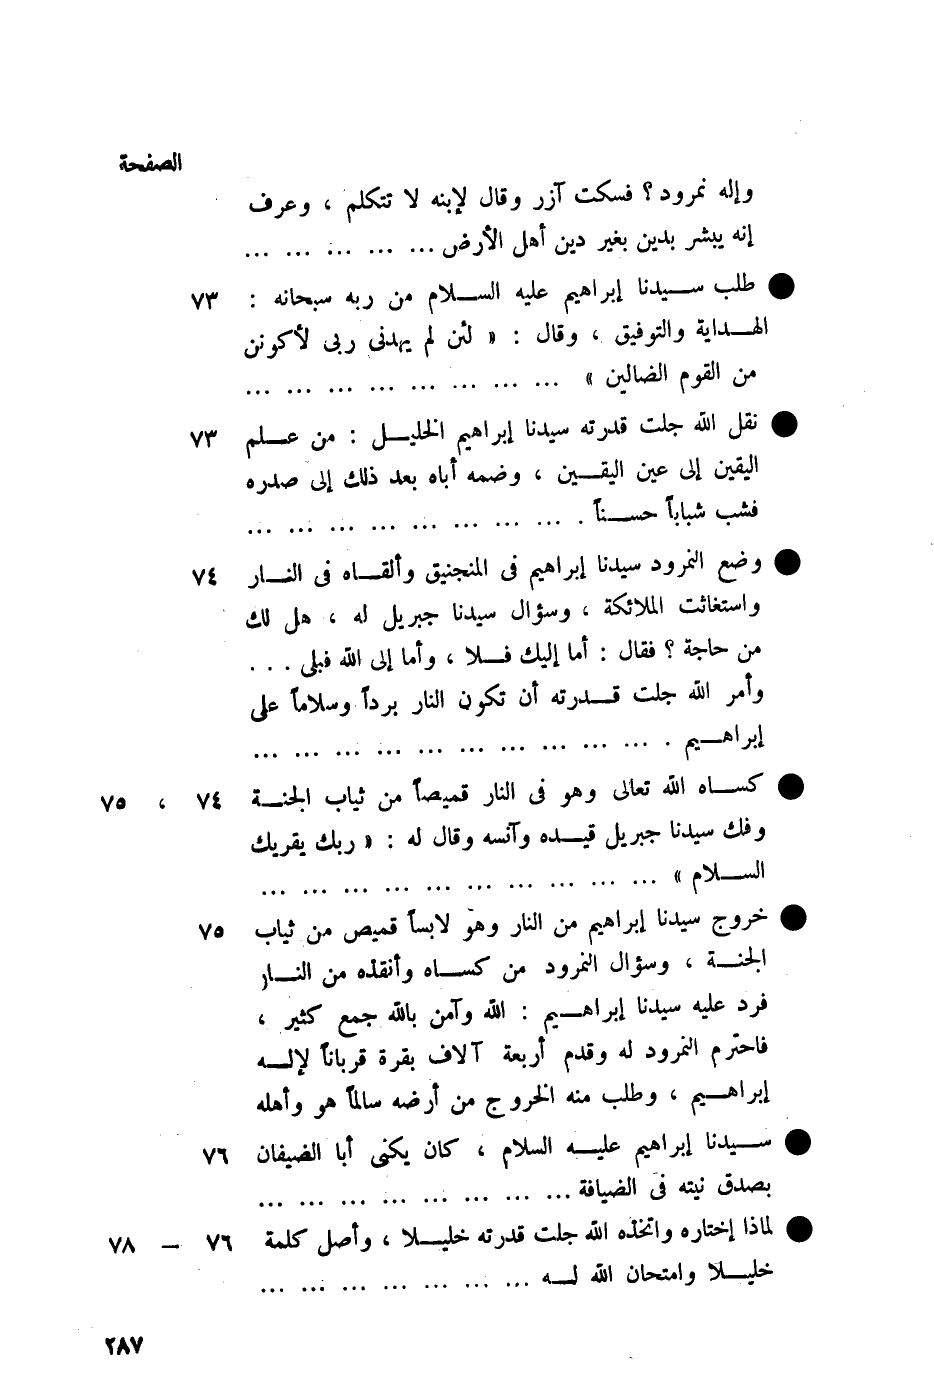 الصفحة
وإله نمرود ؟ فسكت آزر وقال لإبنه لا تتكلم ، وعرف
إنه يبشر بدين بغير دين أهل الأرض ... ... ... ... ...
● طلب ســيدنا إبراهيم عليه السـلام من ربه سبحانه : ٧٣
الهـداية والتوفيق ، وقال : « لئن لم يهدنى ربى لأكونن
من القوم الضالين » ... ... ... ... ... ... ... ...
● نقل الله جلت قدرته سيدنا إبراهيم الخليـل : من عـلم ٧٣
اليقين إلى عين اليقـين ، وضمه أباه بعد ذلك إلى صدره
فشب شباباً حسـناً . ... ... ... ... ... ... ... ...
● وضع النمرود سيدنا إبراهيم فى المنجنيق وألقـاه فى النـار ٧٤
واستغاثت الملائكة ، وسؤال سيدنا جبريل له ، هل لك
من حاجة ؟ فقال : أما إليك فـلا ، وأما إلى الله فبلى . . .
وأمر الله جلت قـدرته أن تكون النار برداً وسلاماً على
إبراهـيم . ... ... ... ... ... ... ... ... ... ...
● كسـاه الله تعالى وهو فى النار قميصاً من ثياب الجنـة ٧٤ ، ٧٥
وفك سيدنا جبريل قيـده وآنسه وقال له : « ربك يقريك
السـلام » ... ... ... ... ... ... ... ... ... ...
● خروج سيدنا إبراهيم من النار وهو لابساً قميص من ثياب ٧٥
الجنـة ، وسؤال النمرود من كسـاه وأنقذه من النـار
فرد عليه سيدنا إبراهـيم : الله وآمن بالله جمع كثير ،
فاحترم النمرود له وقدم أربعة آلاف بقرة قرباناً لإلـه
إبراهـيم ، وطلب منه الخروج من أرضه سالماً هو وأهله
● سـيدنا إبراهيم عليـه السلام ، كان يكنى أبا الضيفان ٧٦
بصدق نيته فى الضيافة ... ... ... ... ... ... ... ...
● لماذا إختاره واتخذه الله جلت قدرته خليـلا ، وأصل كلمة ٧٦ — ٧٨
خليـلا وامتحان الله لـه ... ... ... ... ... ... ...
٢٨٧